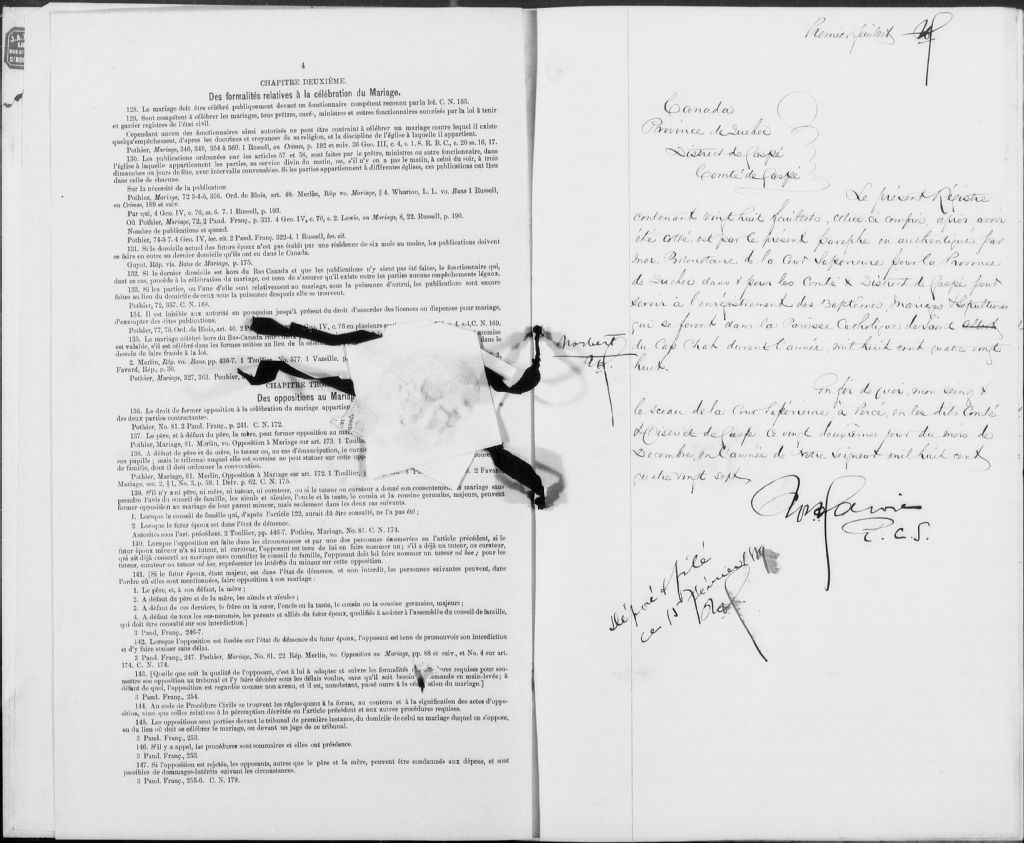 4
CHAPITRE DEUXIÈME.
Des formalités relatives à la célébration du Mariage.
128. Le mariage doit être célébré publiquement devant un fonctionnaire compétent reconnu par la loi. C. N. 165.
129. Sont compétent à célébrer les mariages, tous prêtres, curé, ministres et autres fonctionnaires autorisés par la loi à tenir
et garder registres de l'état civil.
Cependant aucun des fonctionnaires ainsi autorisés ne peut être contraint à célébrer un mariage contre lequel il existe
quelqu'empêchement, d'après les doctrines et croyances de sa religion, et la discipline de l'église à laquelle il appartient.
Pothier, Mariage, 346, 349, 354 à 360. 1 Russell, on Crimes, p. 192 et suiv. 36 Geo. III, c. 4, s. 1. S. R. B. C., c. 20 ss. 16, 17.
130. Les publications ordonnées par les articles 57 et 58, sont faites par le prêtre, ministre ou autre fonctionnaire, dans
l'église à laquelle appartiennent les parties, au service divin du matin, ou, s'il n'y en a pas le matin, à celui du soir, à trois
dimanches ou jours de fête, avec intervalles convenables. Si les parties appartiennent à différentes églises, ces publications ont lieu
dans celle de chacune.
Sur la nécessité de la publication
Pothier, Mariage, 72 3-4-5, 356. Ord. de Blois, art. 40. Merlin, Rép vo. Mariage, § 4. Wharton, L. L. vo. Bans 1 Russell,
on Crimes, 189 et suiv.
Par qui, 4 Geo. IV, c. 76, ss. 6. 7. 1 Russell, p. 193.
Où Pothier, Mariage, 72, 2 Pand. Franç., p. 321. 4 Geo. IV, c. 76, s. 2. Lewis, on Mariage, 8, 22. Russell, p. 190.
Nombre de publications et quand.
Pothier, 74-5-7. 4 Geo. IV, loc. cit. 2 Pand. Franç. 322-4. 1 Russell, loc. cit.
131. Si le domicile actuel des futurs époux n'est pas établi par une résidence de six mois au moins, les publications doivent
se faire en outre au dernier domicile qu'ils ont eu dans le Canada.
Guyot, Rép. vis. Bans de Mariage, p. 175.
132. Si le dernier domicile est hors du Bas Canada et que les publications n'y aient pas été faites, le fonctionnaire qui,
dans ce cas, procède à la célébration du mariage, est tenu de s'assurer qu'il existe entre les parties aucuns empêchements légaux.
133. Si les parties, ou l'une d'elles sont relativement au mariage, sous la puissance d'autrui, les publications sont encore
faites au lieu du domicile de ceux sous la puissance desquels elle se trouvent.
Pothier, 72, 357. C. N. 168.
134. Il est loisible aux autorité en possession jusqu'à présent du droit d'accorder des licences ou dispenses pour mariage,
d'exempter des dites publications.
Pothier, 77, 78. Ord. de Blois, art. 40. 2 IV, c. 76 en plusieurs C. N. 169.
135. Le mariage célébré hors du Bas-Canada
est valable, s'il est célébré dans les formes usitées au lieu de la
dessein de faire fraude à la loi.
2. Merlin, Rép. vo. Bans, pp. 436-7. 1 Toullier, No. 577. 1 Vazeille, p.
Favard, Rép., p. 30.
Pothier, Mariage, 327, 363.
CHAPITRE
Des oppositions au
136. Le droit de former opposition à la célébration du mariage appartien
des deux parties contractantes.
Pothier, No. 81. 3 Pand. Franç., p. 241. C. N. 172.
137. Le père, et à défaut du père, la mère, peut former opposition au
Pothier, Mariage, 81. Merlin, vo. Opposition à Mariage sur art. 173. 1
138. A défaut de père et de mère, le tuteur ou, au cas d'émancipation, le
son pupille; mais le tribunal auquel elle est soumise ne peut statuer sur cette
de famille, dont il doit ordonner la convocation.
Pothier, Mariage, 81. Merlin, Opposition à Mariage sur art. 172. 1 Toullier, 2 Favard
Mariage, sec. 2, § 1, No. 3, p. 59. 1 Delv. p. 62. C. N. 175.
139. S'il n'y a ni père, ni mère, ni tuteur, ni curateur, ou si le tuteur ou curateur a donné son consentement au mariage sans
prendre l'avis du conseil de famille, les aïeuls et aïeules, l'oncle et la tante, le cousin et la cousine germains, majeurs, peuvent
former opposition au mariage de leur parent mineur, mais seulement dans les deux cas suivants.
1. Lorsque le conseil de famille qui, d'après l'article 122, aurait dû être consulté, ne l'a pas été;
2. Lorsque le futur époux est dans l'état de démence.
Autorités sous l'art. précédent. 2 Toullier, pp. 446-7. Pothier, Mariage, No. 81. C. N. 174.
140. Lorsque l'opposition est faite dans les circonstances et par une des personnes énumérées en l'article précédent, si le
futur époux mineur n'a ni tuteur, ni curateur, l'opposant est tenu de lui en faire nommer un; s'il a déjà un tuteur, ou curateur,
qui ait déjà consenti au mariage sans consulter le conseil de famille, l'opposant doit lui faire nommer un tuteur ad hoc; pour les
tuteur, curateur ou tuteur ad hoc, représenter les intérêts du mineur sur cette opposition.
141. [Si le futur époux, étant majeur, est dans l'état de démence, et non interdit, les personnes suivantes peuvent, dans
l'ordre où elles sont mentionnées, faire opposition à son mariage:
1. Le père, et, à son défaut, la mère;
2. A défaut du père et de la mère, les aïeuls et aïeules;
3. A défaut de ces derniers, le frère ou la sœur, l'oncle ou la tante, le cousin ou la cousine germains, majeurs;
4. A défaut de tous les sus-nommés, les parents et alliés du futur époux, qualifiés à assister à l'assemblée du conseil de famille,
qui doit être consulté sur son interdiction.]
3 Pand, Franç., 246-7.
142. Lorsque l'opposition est fondée sur l'état de démence du futur époux, l'opposant est tenu de promouvoir son interdiction
et d'y faire statuer sans délai.
3 Pand. Franç., 247. Pothier, Mariage, No. 81. 22 Rép. Merlin, vo. Opposition au Mariage, pp. 88 et suiv., et No. 4 sur art.
174. C. N. 174.
143. [Quelle que soit la qualité de l'opposant, c'est à lui à adopter et suivre les formalités requises pour sou-
mettre son opposition au tribunal et l'y faire décider sous les délais voulus, sans qu'il soit besoin demande en main-levée; à
défaut de quoi, l'opposition est regardée comme non avenu, et il est, nonobstant, passé outre à la célébration du mariage.]
3 Pand. Franç., 254.
144. Au code de Procédure Civile se trouvent les règles quant à la forme, au contenu et à la signification des actes d'oppo-
sition, ainsi que celles relatives à la péremption décrétée en l'article précédent et aux autres procédures requises.
145. Les oppositions sont portées devant le tribunal de première instance, du domicile de celui au mariage duquel on s'oppose,
ou du lieu où doit se célébrer le mariage, ou devant un juge de ce tribunal.
3 Pand. Franç., 253.
146. S'il y a appel, les procédures sont sommaires et elles ont préséance.
3 Pand. Franç., 253.
147. Si l'opposition est rejetée, les opposants, autres que le père et la mère, peuvent être condamnés aux dépens, et sont
passibles de dommages-intérêts suivant les circonstances.
3 Pand. Franç., 255-6. C. N. 179.
Premier feuillet
Canada
Province de Quebec
District de Gaspé
Comté de Gaspé
Le présent Régistre
contenant vingt huit feuillets, celui-ci compris, après avoir
été cotté, est par le présent paraphé ou authentiqué par
moi, Protonotaire de la Cour Supérieure pour la Province
de Quebec dans & pour les Comté & District de Gaspé pour
servir à l'enregistrement des Baptêmes Mariages & Sépultures
qui se feront dans la Paroisse Catholique de Saint
du Cap Chat durant l'année mil huit cent quatre vingt
huit.
Norbert
En foi de quoi, mon seing &
le sceau de la Cour Supérieure à Percé, en les dits Comté
& District de Gaspé ce vingt deuxième jour du mois de
Decembre, en l'année de Notre Seigneur mil huit cent
quatre vingt sept
P. C. S.
Déposé & filé
ce 15 février 1889